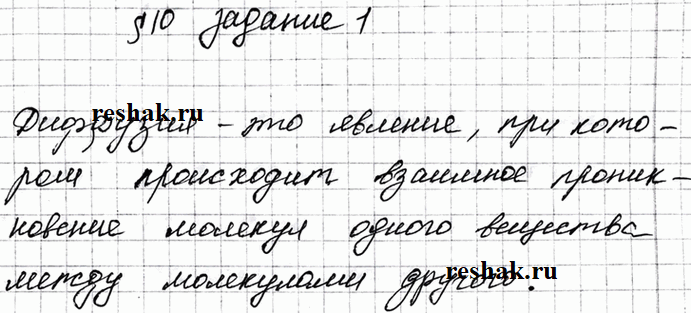 §10 задание 1
reshak.ru
Диффузия - это явление, при кото-
ром происходит взаимное проник-
новение молекул одного вещества
между молекулами другого.
reshak.ru